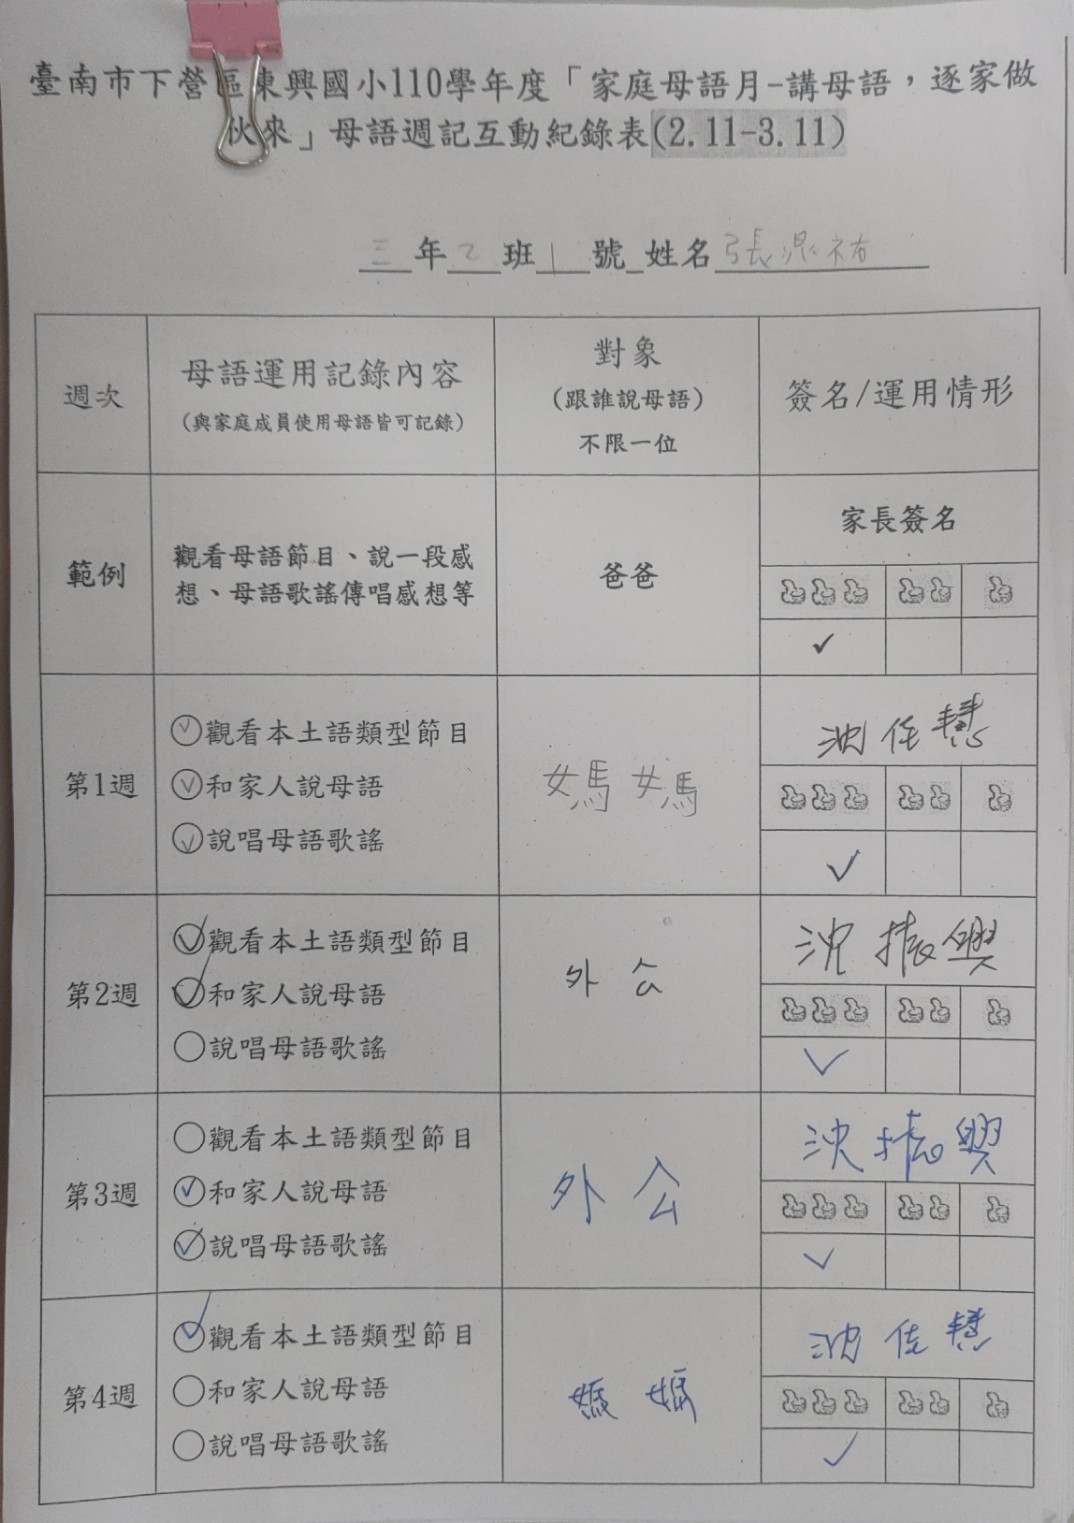 臺南市下營區東興國小110學年度「家庭母語月-講母語，逐家做
伙來」母語週記互動紀錄表(2.11-3.11)
三年乙班1號 姓名張鼎祐
週次
母語運用記錄內容
(與家庭成員使用母語皆可記錄)
對象
(跟誰說母語)
不限一位
簽名/運用情形
範例
觀看母語節目、說一段感
想、母語歌謠傳唱感想等
爸爸
家長簽名
第1週
觀看本土語類型節目
和家人說母語
說唱母語歌謠
媽媽
沈佳慧
第2週
觀看本土語類型節目
和家人說母語
說唱母語歌謠
外公
沈振興
第3週
觀看本土語類型節目
和家人說母語
說唱母語歌謠
外公
沈振興
第4週
觀看本土語類型節目
和家人說母語
說唱母語歌謠
媽媽
沈佳慧